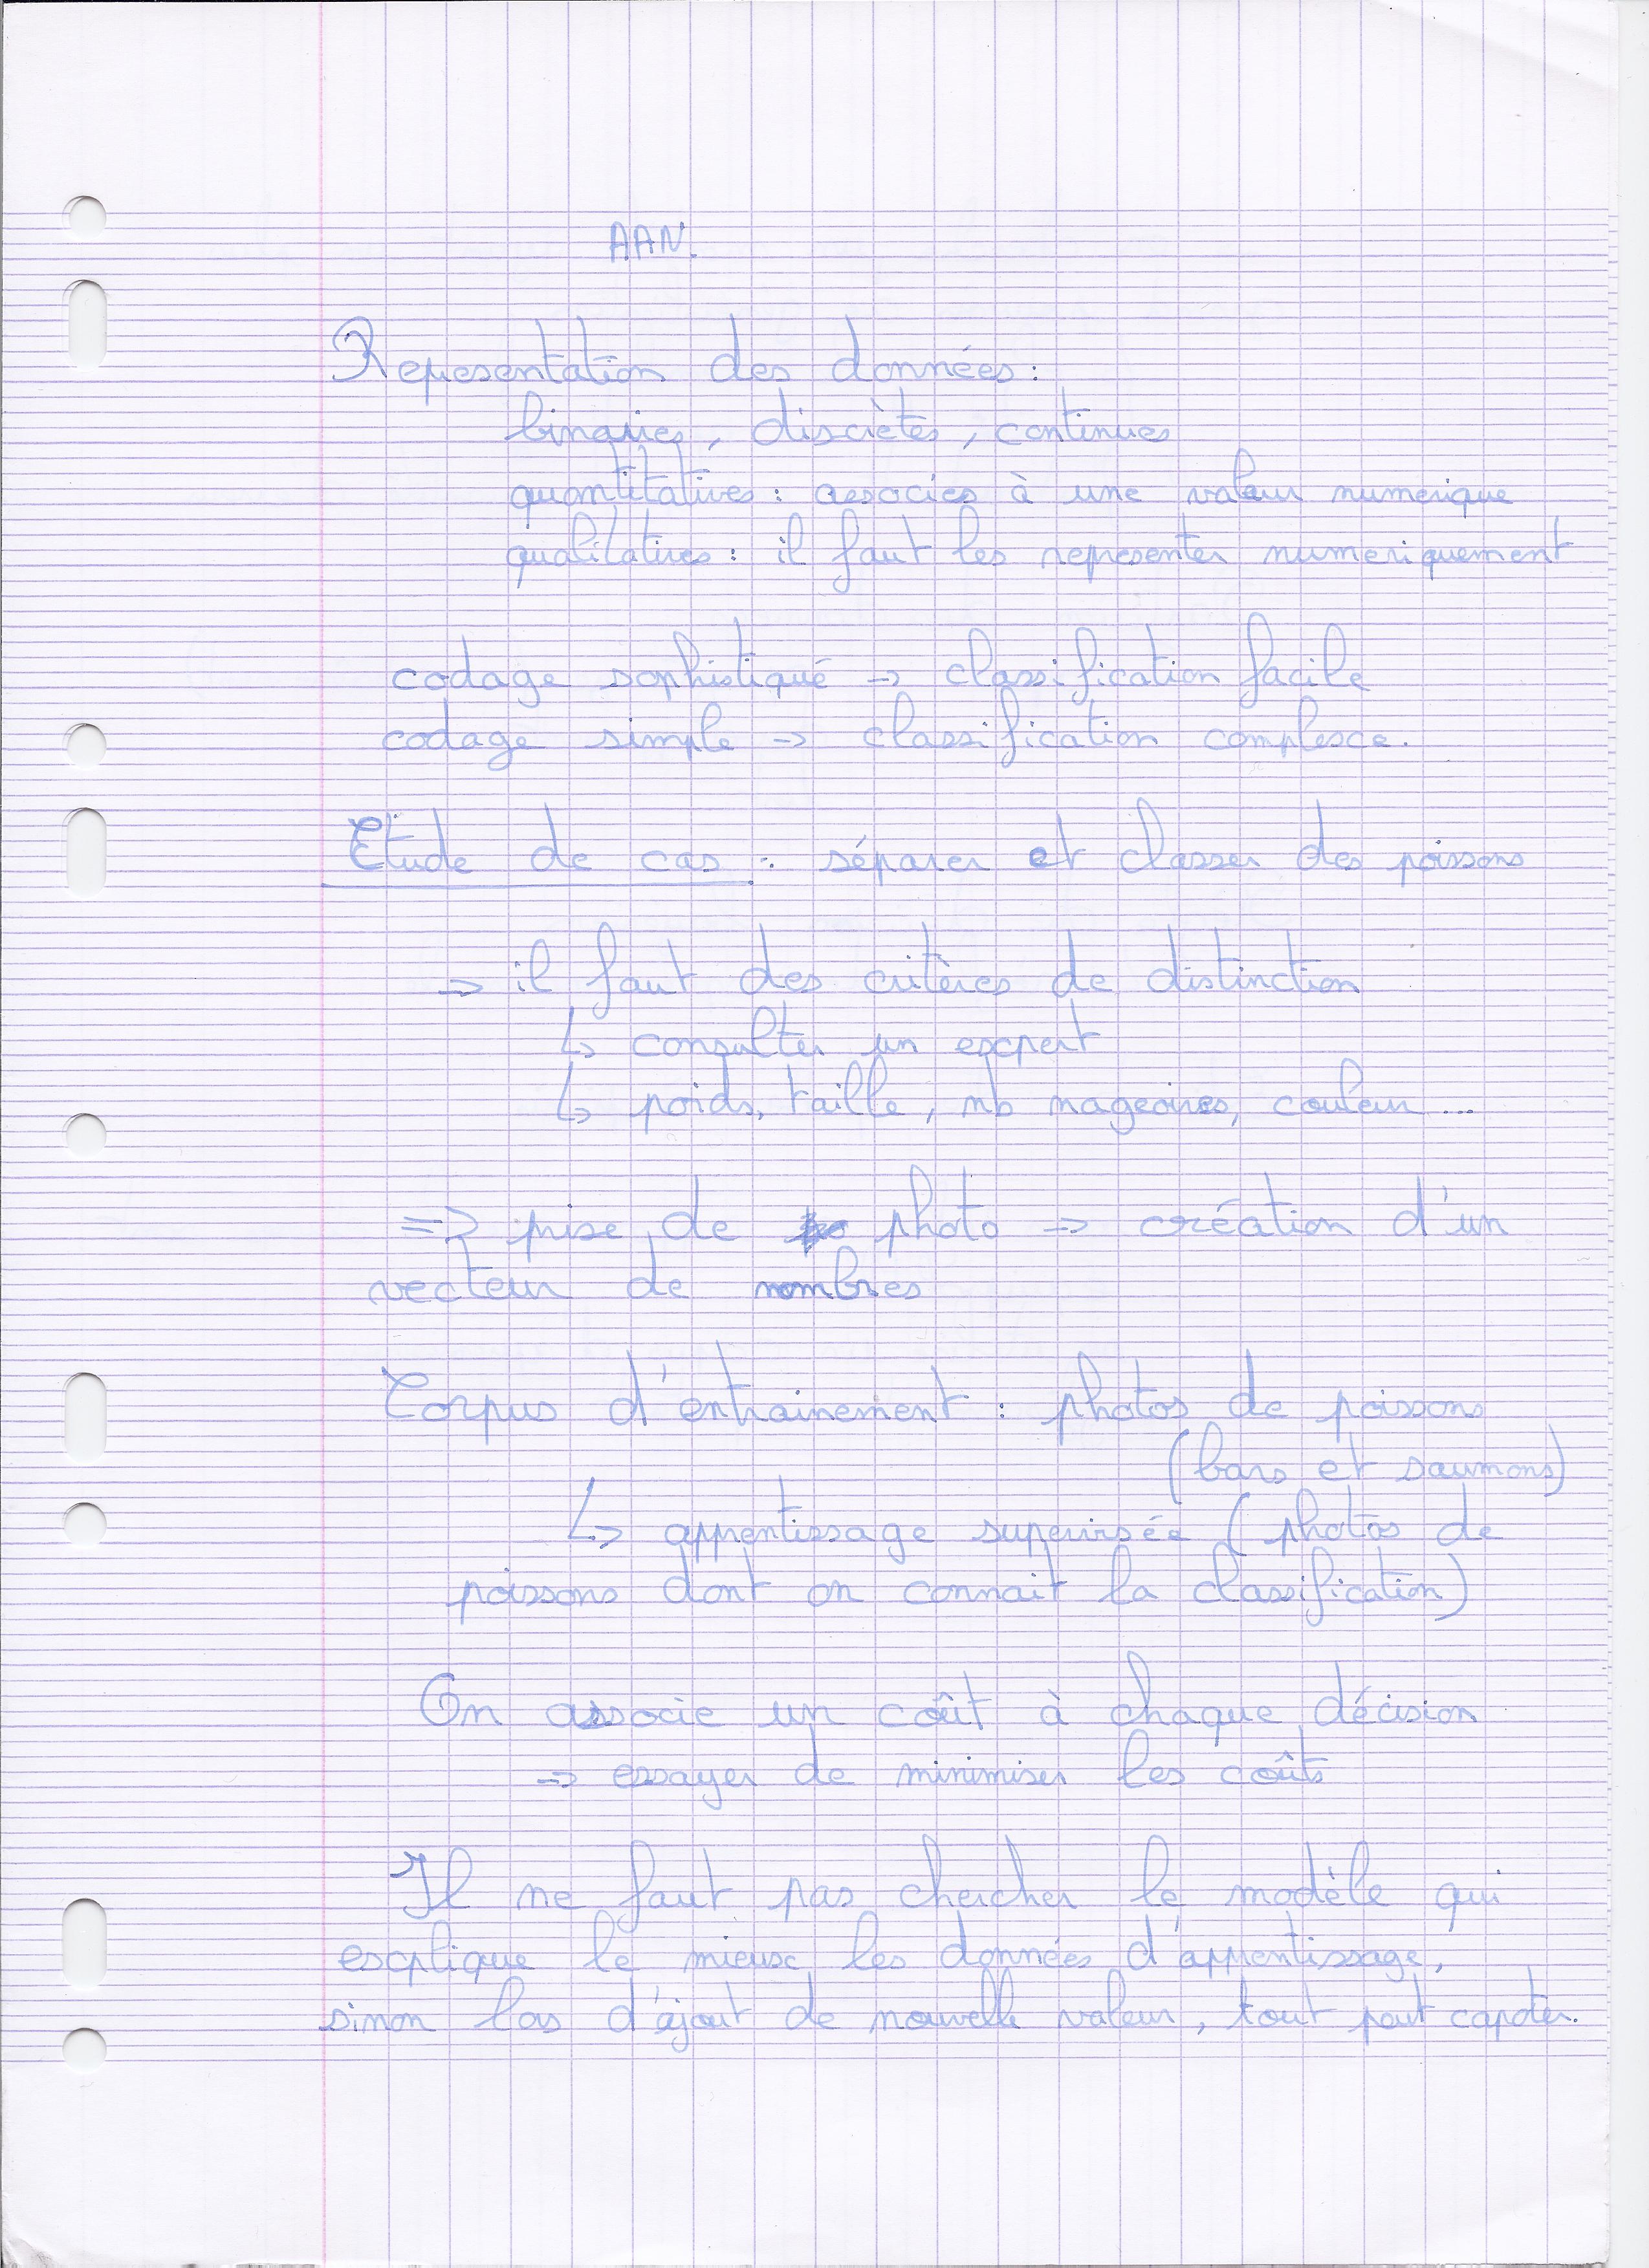 AAN.
Representation des données :
binaires, discrètes, continues
quantitatives : associés à une valeur numerique
qualitatives : il faut les representer numeriquement
codage sophistiqué → classification facile
codage simple → classification complexe.
Etude de cas : séparer et classer des poissons
→ il faut des critères de distinction
↳ consulter un expert
↳ poids, taille, nb nageoires, couleur ...
=> prise de photo → création d'un
vecteur de nombres
Corpus d'entrainement : photos de poissons
(bars et saumons)
↳ apprentissage supervisée (photos de
poissons dont on connait la classification)
On associe un coût à chaque décision
→ essayer de minimiser les coûts
Il ne faut pas chercher le modèle qui
explique le mieux les données d'apprentissage,
sinon lors d'ajout de nouvelle valeur, tout peut capoter.